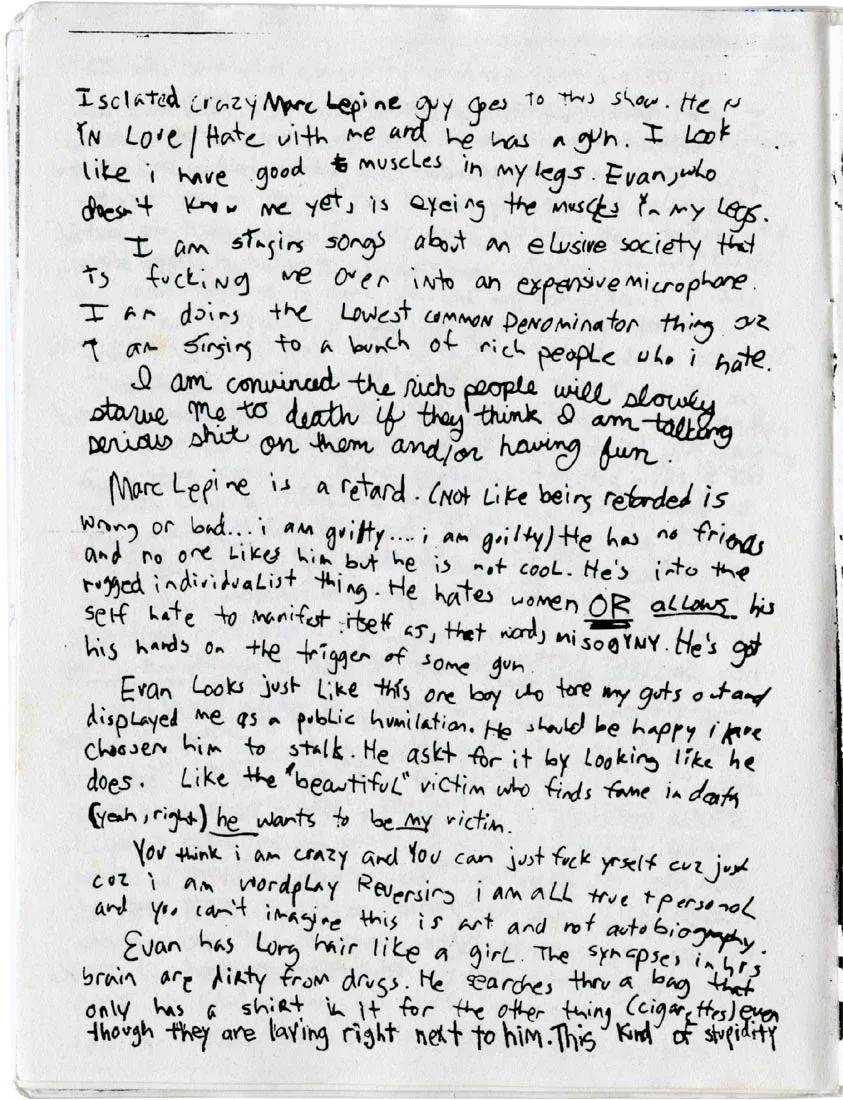 Isolated crazy Marc Lepine guy goes to this show. He is
iN Love/Hate with me and he has a gun. I Look
like i have good muscles in my legs. Evan, who
doesn't know me yet, is eyeing the muscles in my Legs.
I am singing songs about an elusive society that
is fucking me over into an expensive microphone.
I am doing the Lowest common Denominator thing cuz
I am singing to a bunch of rich people who i hate.
I am convinced the rich people will slowly
starve me to death if they think I am talking
serious shit on them and/or having fun.
Marc Lepine is a retard. (Not Like being retarded is
wrong or bad... i am guilty.... i am guilty) He has no friends
and no one Likes him but he is not cool. He's into the
rugged individualist thing. He hates women OR allows his
self hate to manifest itself as, that word, misogyny. He's got
his hands on the trigger of some gun.
Evan Looks just Like this one boy who tore my guts out and
displayed me as a public humilation. He should be happy i have
choosen him to stalk. He askt for it by looking like he
does. Like the "beautiful" victim who finds fame in death
(yeah, right) he wants to be my victim.
You think i am crazy and You can just fuck yrself cuz just
coz i am wordplay Reversing i am all true + personal
and you can't imagine this is art and not autobiography.
Evan has Long hair like a girl. The synapses in his
brain are dirty from drugs. He searches thru a bag that
only has a shirt in it for the other thing (cigarettes) even
though they are laying right next to him. This kind of stupidity